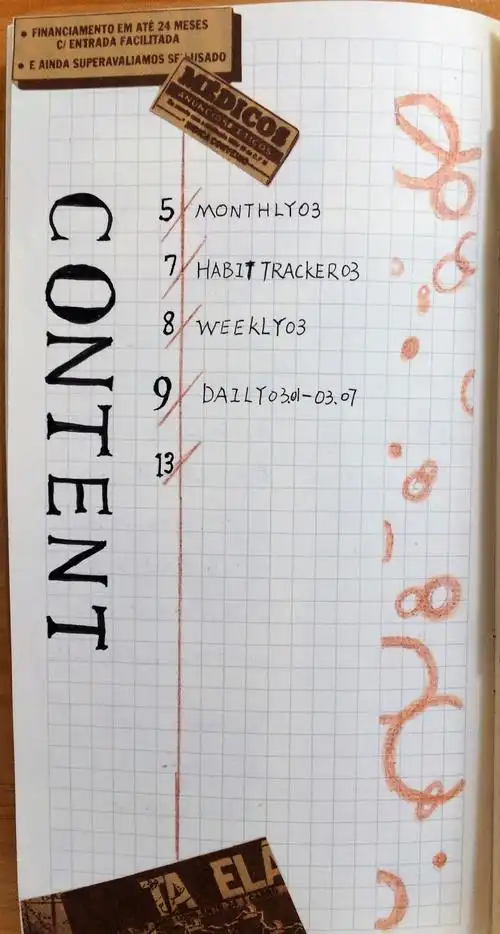 • FINANCIAMENTO EM ATÉ 24 MESES
C/ ENTRADA FACILITADA
• E AINDA SUPERAVALIAMOS SEU USADO
MEDICOS
ANUNCIOS
CONTENT
5 MONTHLY03
7 HABIT TRACKER03
8 WEEKLY03
9 DAILY03.01-03.07
13
TA ELA